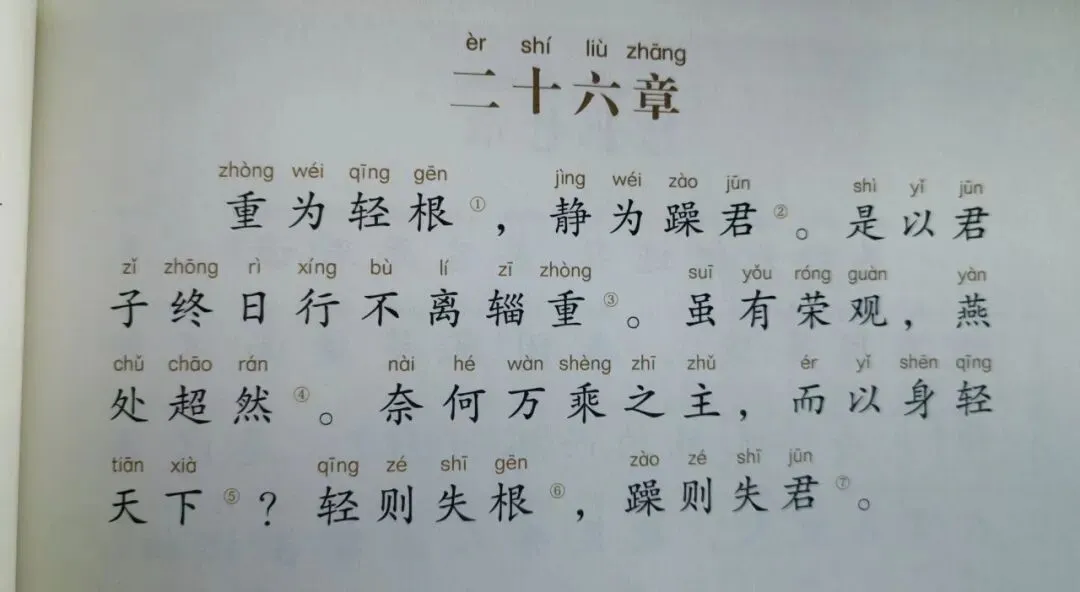 èr shí liù zhāng
二十六章
zhòng wéi qīng gēn jìng wéi zào jūn shì yǐ jūn
重为轻根①，静为躁君②。是以君
zǐ zhōng rì xíng bù lí zī zhòng suī yǒu róng guàn yàn
子终日行不离辎重③。虽有荣观，燕
chǔ chāo rán nài hé wàn shèng zhī zhǔ ér yǐ shēn qīng
处超然④。奈何万乘之主，而以身轻
tiān xià qīng zé shī gēn zào zé shī jūn
天下⑤？轻则失根⑥，躁则失君⑦。